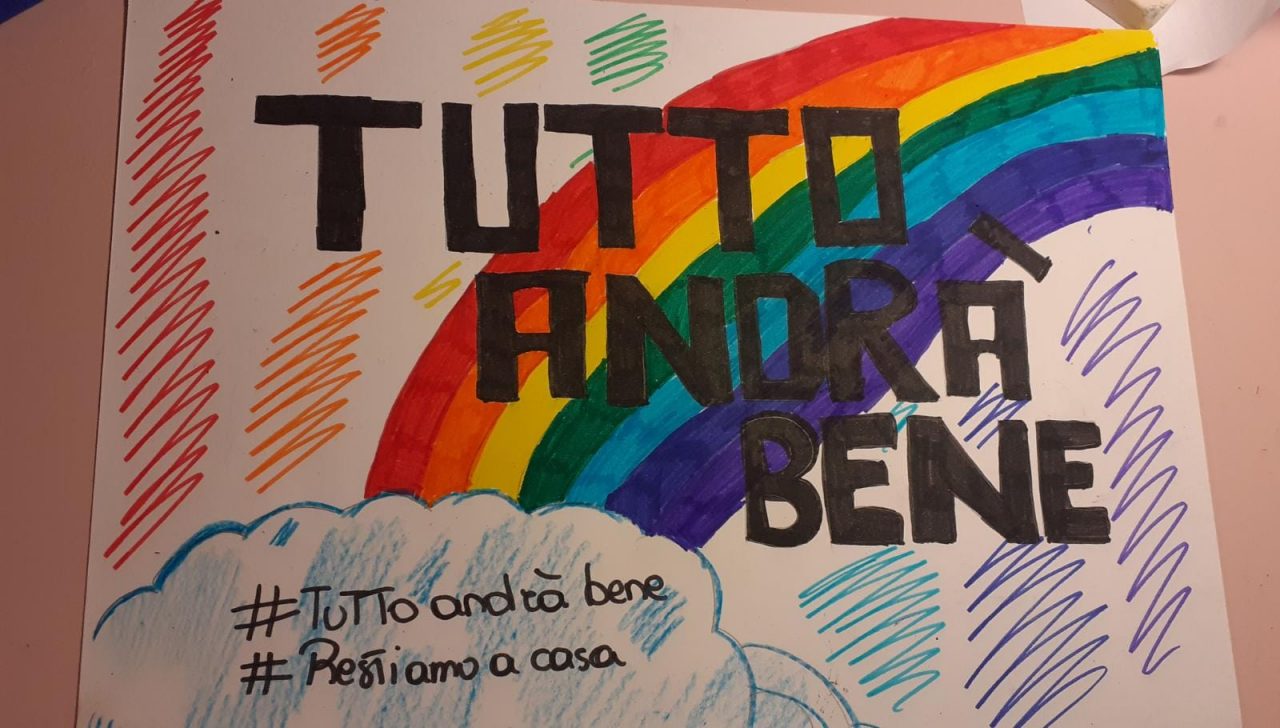 TUTTO
ANDRÀ
BENE
#TuTTo andrà bene
# Restiamo a casa